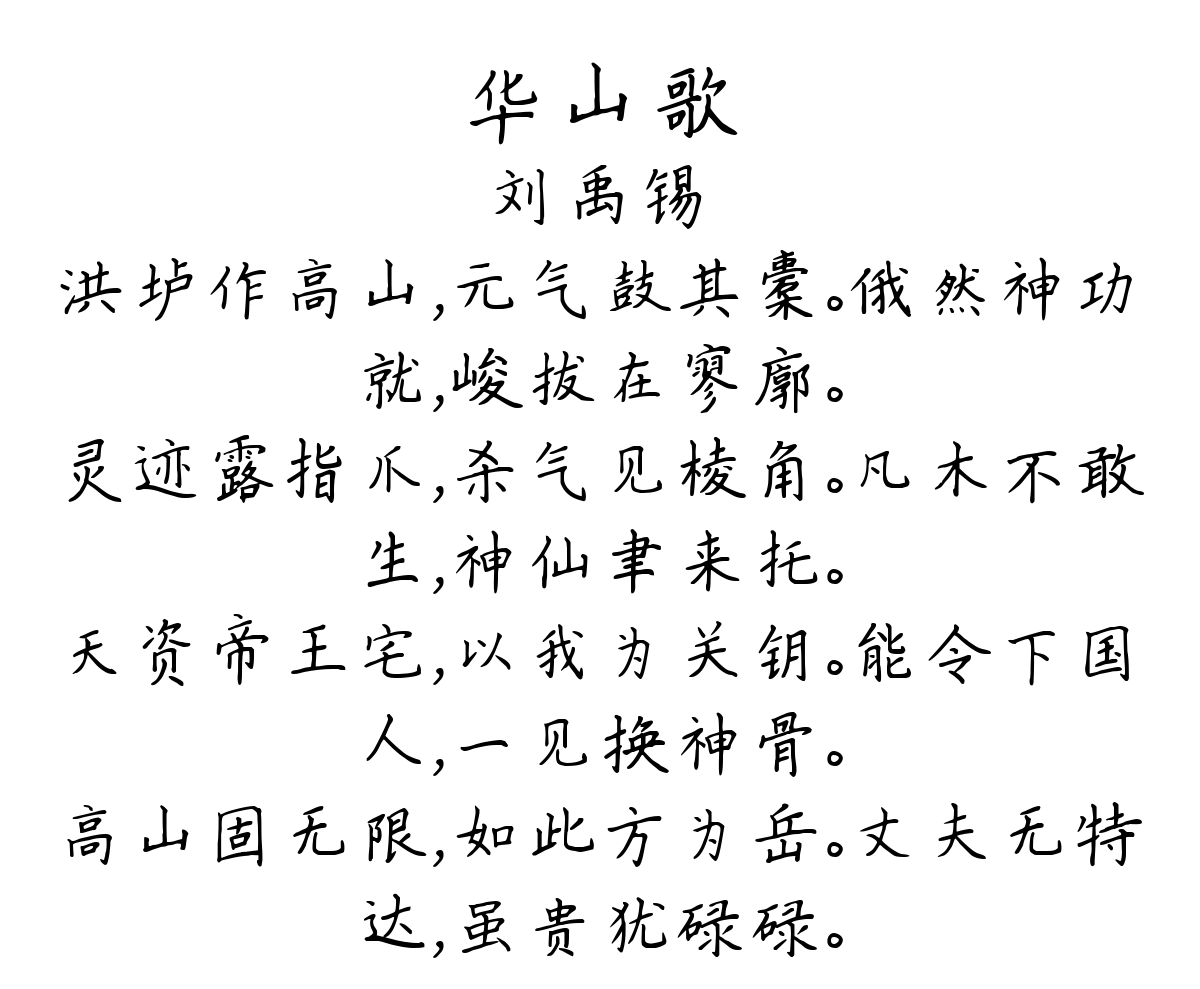 华山歌
刘禹锡
洪垆作高山,元气鼓其橐。俄然神功
就,峻拔在寥廓。
灵迹露指爪,杀气见棱角。凡木不敢
生,神仙聿来托。
天资帝王宅,以我为关钥。能令下国
人,一见换神骨。
高山固无限,如此方为岳。丈夫无特
达,虽贵犹碌碌。